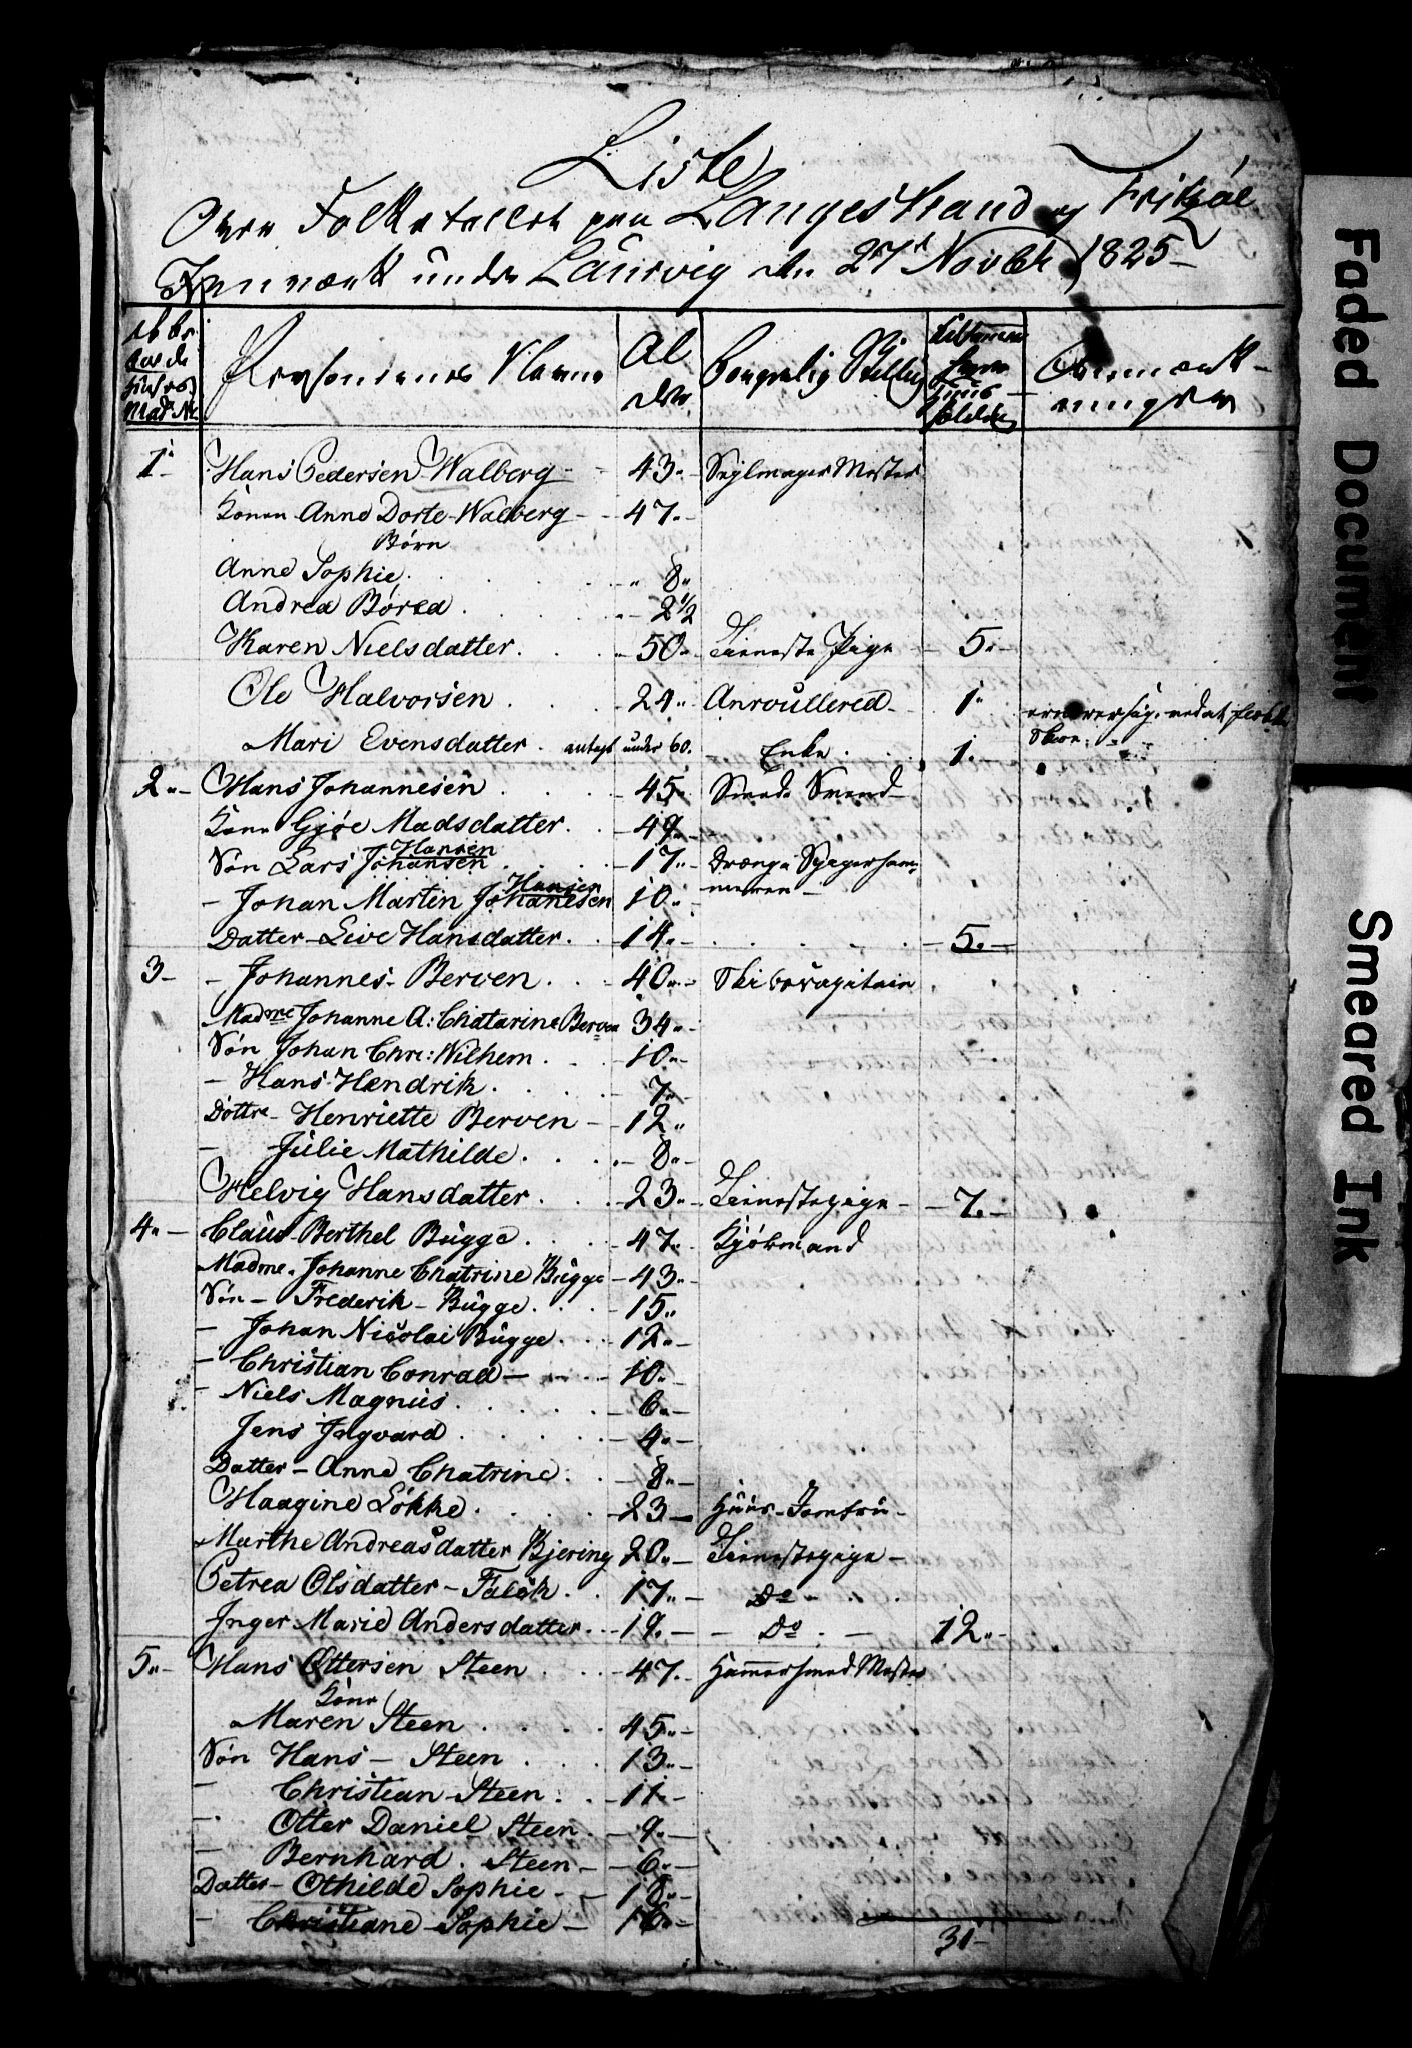 Liste
Over Folketallet paa Langestrand og Fritzøe
Jernværk under Laurvig den 27d Novbr 1825
Personernes Navne
Al
der
Borgerlig Stilling
Anmærk-
ninger
1- Hans Pedersen Walberg - 43 - Sejlmager Mester
Konen Anne Dorte Walberg - 47 -
Børn
Anne Sophie 8
Andrea Børea 2 1/2
Karen Nielsdatter 50 Tieneste Pige - 5 -
Ole Halvorsen 24 Anroullered 1
Mari Evensdatter antagt under 60 Enke 1
2 - Hans Johannesen 45 Smede Svend
Kone Gjøe Madsdatter 49
Hansen
Søn Lars Johansen 17 Drænge
Hansen
- Johan Martin Johanesen 10
Datter Live Hansdatter 14 - 5 -
3 - Johannes Berven 40 Skibscapitain
Madme Johanne A: Chatarine Berven 34
Søn Johan Chr: Wilhem 10
- Hans Hendrik 7
Døttre Henriette Berven - 12
- Julie Mathilde 8
Helvig Hansdatter 23 Tienestepige - 7 -
4 - Claus Berthel Bugge 47 Kjøbmand
Madme Johanne Chatrine Bugge - 43
Søn - Frederik - Bugge 15
- Johan Nicolai Bugge 12
- Christian Conrad - 10
- Niels Magnus 6
Jens Ingvard 4
Datter - Anne Chatrine 8
Maagine Løkke 23 Huus-Jomfru -
Marthe Andreasdatter Bjering 20 Tienestepige -
Petrea Olsdatter - Falck 17 Do -
Inger Marie Andersdatter 19 - Do - 12
5 - Hans Ottersen Steen 47 Hammersmed Mester
Kone
Maren Steen 45
Søn Hans - Steen 13
- Christian Steen 11
- Otter Daniel Steen 9
- Bernhard Steen - 6
Datter - Othilde Sophie - 18
- Christiane Sophie - 16
31 -
Faded Document
Smeared Ink